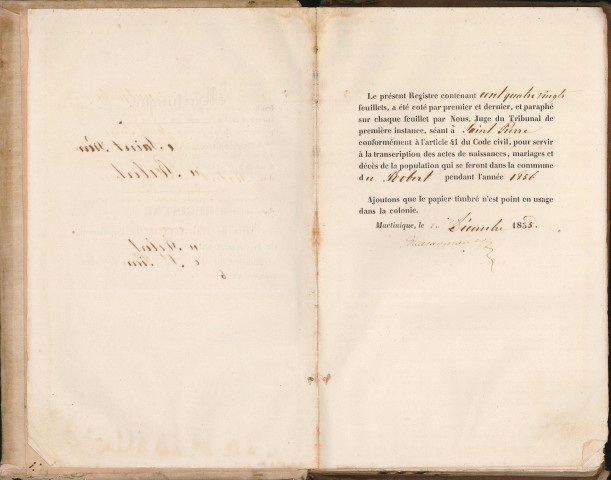 Le présent Registre contenant cent quatre vingts
feuillets, a été coté par premier et dernier, et paraphé
sur chaque feuillet par Nous, Juge du Tribunal de
première instance, séant à Saint Pierre
conformément à l'article 41 du Code civil, pour servir
à la transcription des actes de naissances, mariages et
décès de la population qui se feront dans la commune
du Robert pendant l'année 1856
Ajoutons que le papier timbré n'est point en usage
dans la colonie.
Martinique, le Décembre 1855.